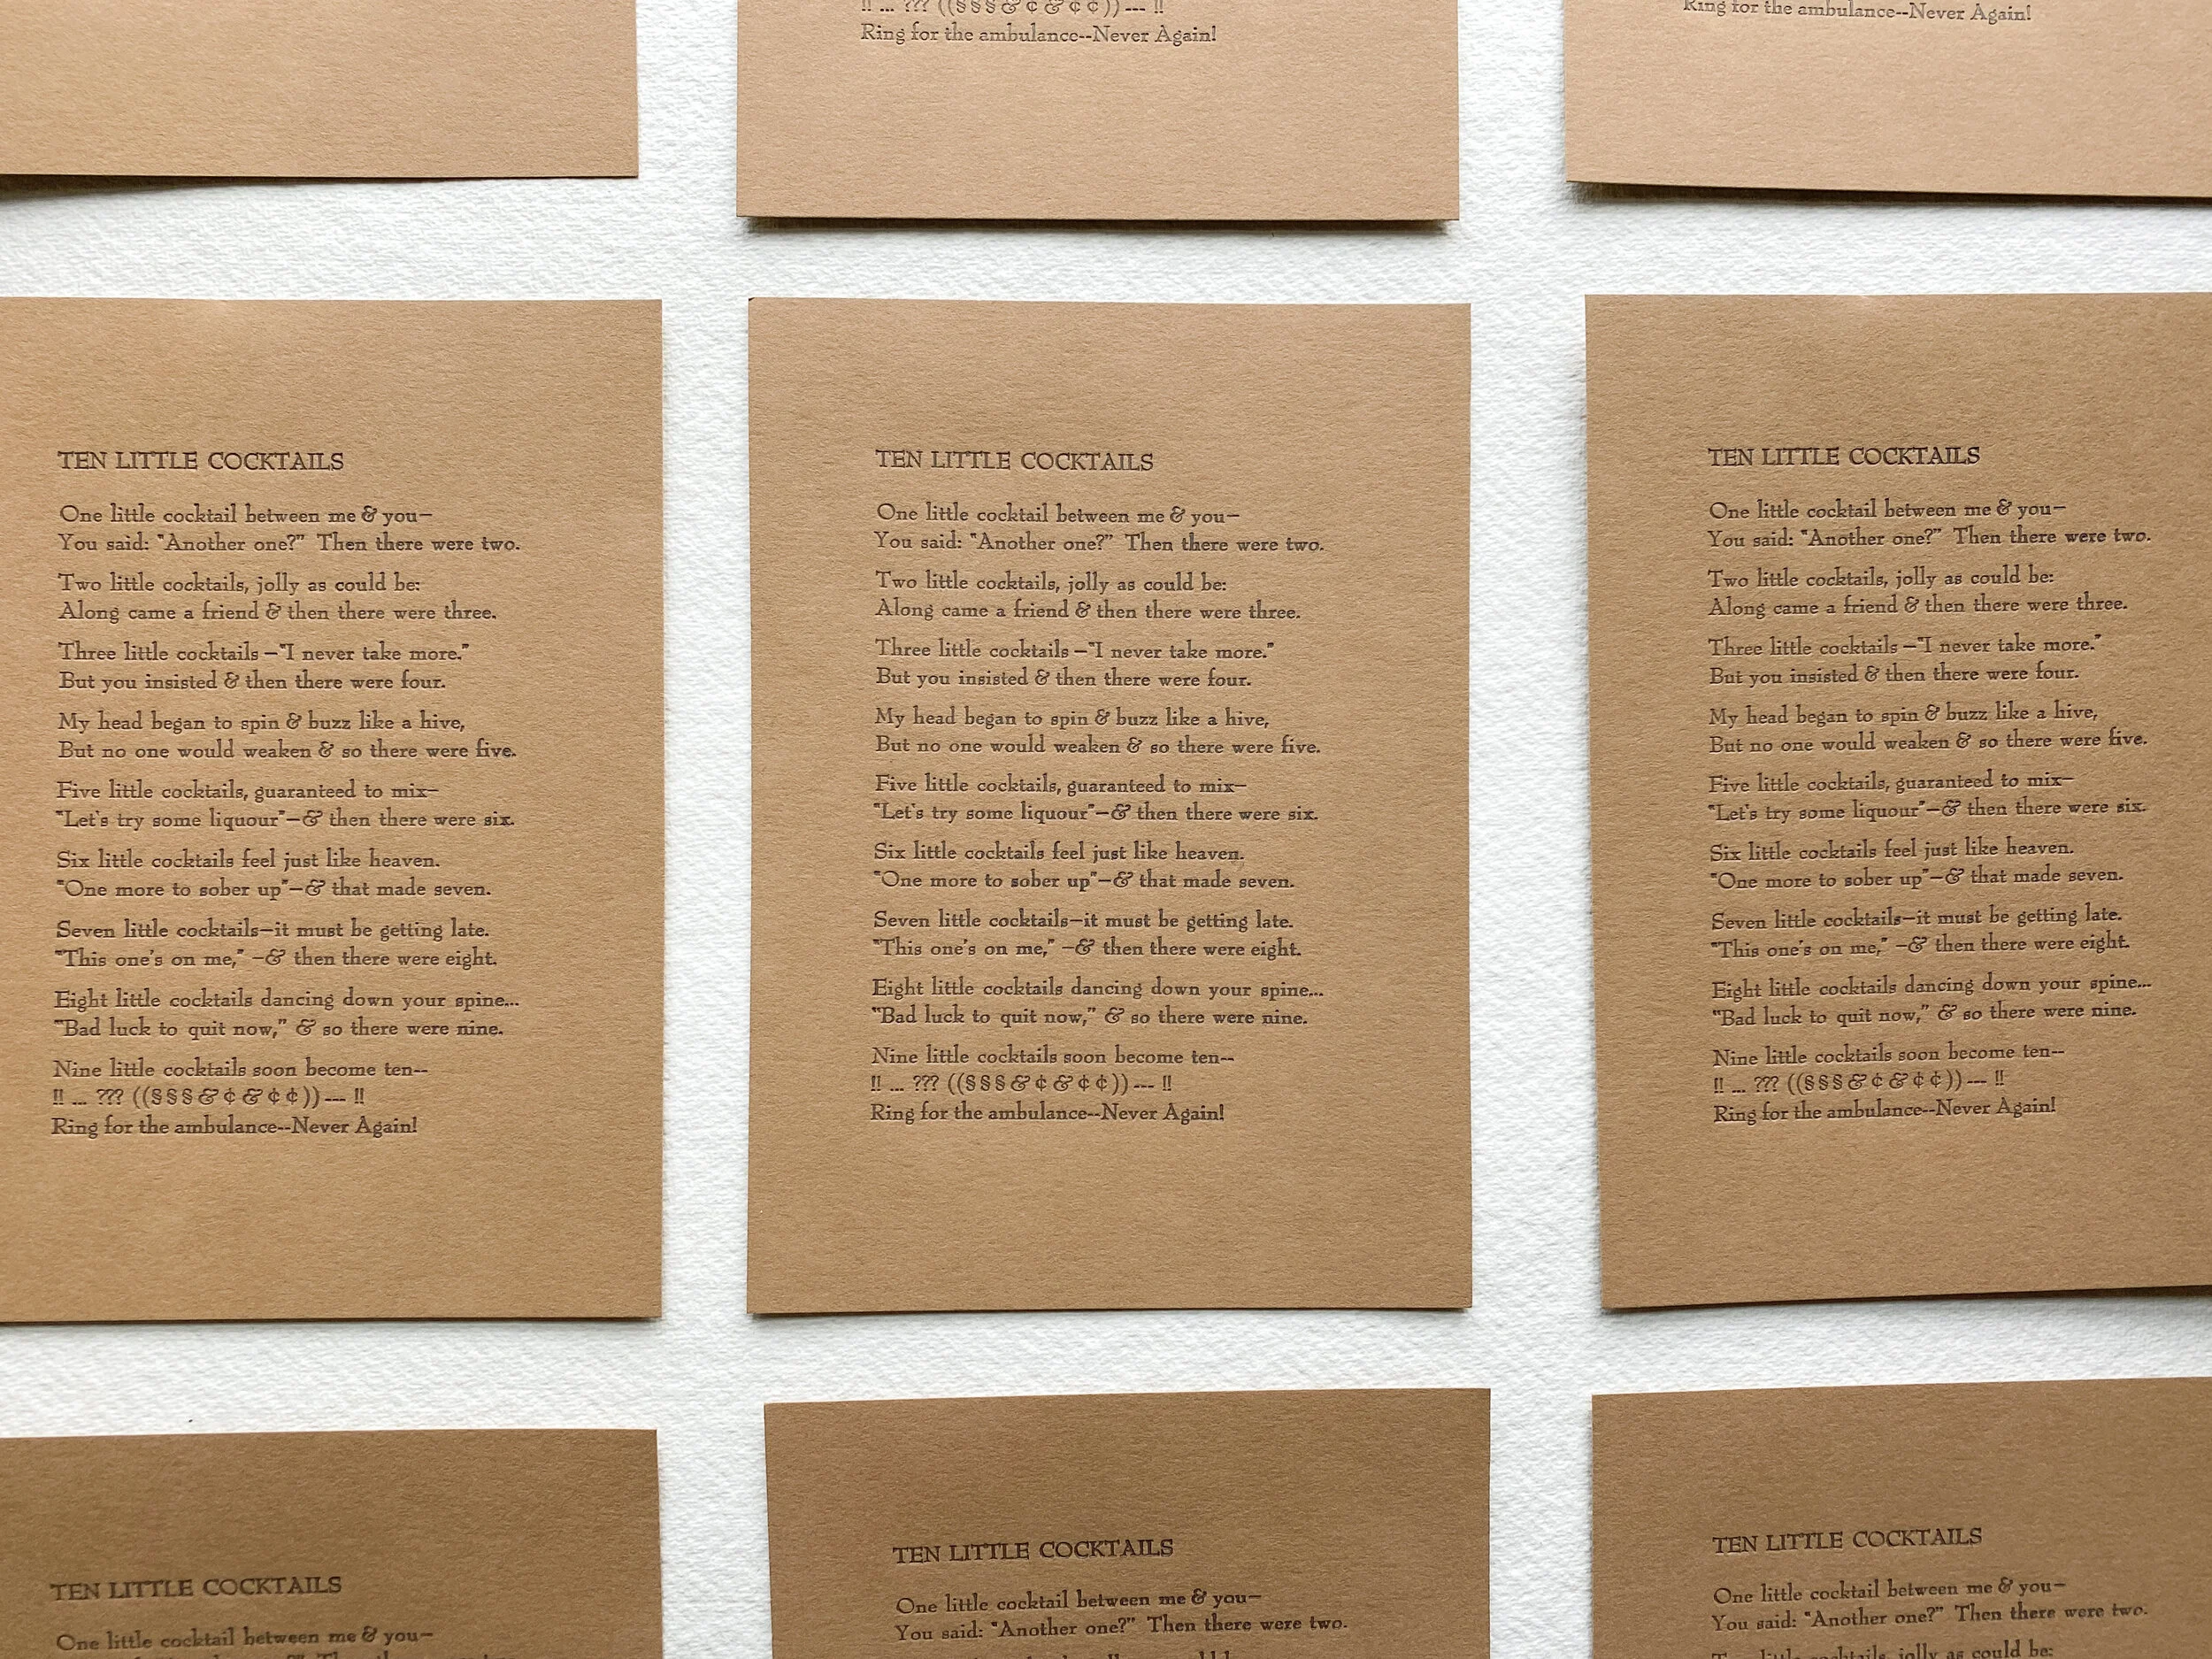 !! ... ??? ((§§§&¢&¢¢))--- !!
Ring for the ambulance--Never Again!
Ring for the ambulance--Never Again!
TEN LITTLE COCKTAILS
One little cocktail between me & you—
You said: "Another one?" Then there were two.
Two little cocktails, jolly as could be:
Along came a friend & then there were three.
Three little cocktails—"I never take more."
But you insisted & then there were four.
My head began to spin & buzz like a hive,
But no one would weaken & so there were five.
Five little cocktails, guaranteed to mix—
"Let's try some liquour"—& then there were six.
Six little cocktails feel just like heaven.
"One more to sober up"—& that made seven.
Seven little cocktails—it must be getting late.
"This one's on me," —& then there were eight.
Eight little cocktails dancing down your spine...
"Bad luck to quit now," & so there were nine.
Nine little cocktails soon become ten--
!! ... ??? ((§§§&¢&¢¢))--- !!
Ring for the ambulance--Never Again!
TEN LITTLE COCKTAILS
One little cocktail between me & you—
You said: "Another one?" Then there were two.
Two little cocktails, jolly as could be:
Along came a friend & then there were three.
Three little cocktails—"I never take more."
But you insisted & then there were four.
My head began to spin & buzz like a hive,
But no one would weaken & so there were five.
Five little cocktails, guaranteed to mix—
"Let's try some liquour"—& then there were six.
Six little cocktails feel just like heaven.
"One more to sober up"—& that made seven.
Seven little cocktails—it must be getting late.
"This one's on me," —& then there were eight.
Eight little cocktails dancing down your spine...
"Bad luck to quit now," & so there were nine.
Nine little cocktails soon become ten--
!! ... ??? ((§§§&¢&¢¢))--- !!
Ring for the ambulance--Never Again!
TEN LITTLE COCKTAILS
One little cocktail between me & you—
You said: "Another one?" Then there were two.
Two little cocktails, jolly as could be:
Along came a friend & then there were three.
Three little cocktails—"I never take more."
But you insisted & then there were four.
My head began to spin & buzz like a hive,
But no one would weaken & so there were five.
Five little cocktails, guaranteed to mix—
"Let's try some liquour"—& then there were six.
Six little cocktails feel just like heaven.
"One more to sober up"—& that made seven.
Seven little cocktails—it must be getting late.
"This one's on me," —& then there were eight.
Eight little cocktails dancing down your spine...
"Bad luck to quit now," & so there were nine.
Nine little cocktails soon become ten--
!! ... ??? ((§§§&¢&¢¢))--- !!
Ring for the ambulance--Never Again!
TEN LITTLE COCKTAILS
One little cocktail between me & you—
TEN LITTLE COCKTAILS
One little cocktail between me & you—
You said: "Another one?" Then there were two.
TEN LITTLE COCKTAILS
One little cocktail between me & you—
You said: "Another one?" Then there were two.
Two little cocktails, jolly as could be: